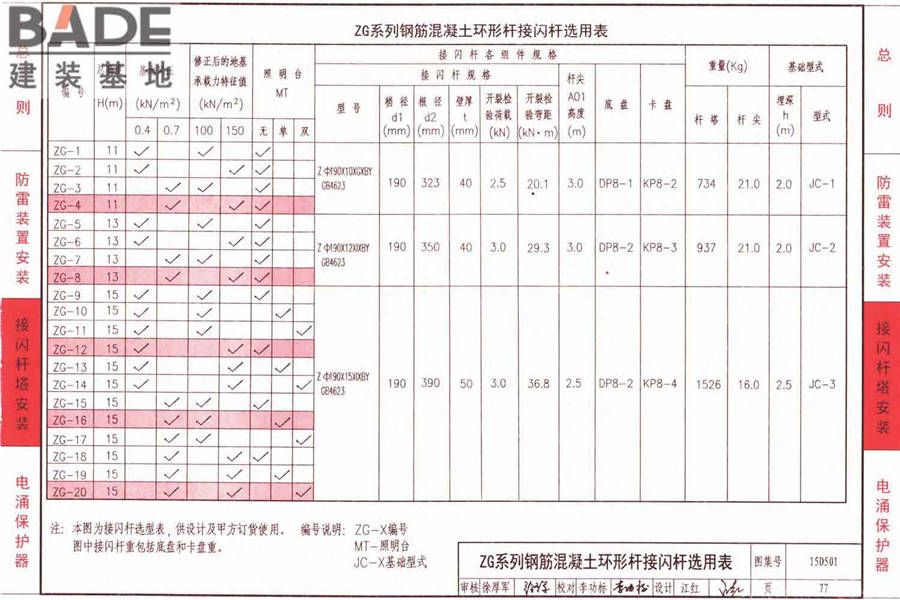 BADE
建装基地
ZG系列钢筋混凝土环形杆接闪杆选用表
编号
H(m)
(kN/m²)
0.4 0.7
修正后的地基
承载力特征值
(kN/m²)
100 150
照明台
MT
无 单 双
接闪杆各组件规格
接闪杆规格
型号
梢径
d1
(mm)
根径
d2
(mm)
壁厚
t
(mm)
开裂检
验荷载
(kN)
开裂检
验弯距
(kN·m)
杆尖
A01
高度
(m)
底盘
卡盘
重量(Kg)
杆塔
杆尖
基础型式
埋深
h
(m)
型式
ZG-1 11 ✓ ✓ ✓
ZG-2 11 ✓ ✓ ✓
ZG-3 11 ✓ ✓ ✓
ZG-4 11 ✓ ✓ ✓
Z Φ190X10XGXBY
GB4623
190 323 40 2.5 20.1 3.0 DP8-1 KP8-2 734 21.0 2.0 JC-1
ZG-5 13 ✓ ✓ ✓
ZG-6 13 ✓ ✓ ✓
ZG-7 13 ✓ ✓ ✓
ZG-8 13 ✓ ✓ ✓
Z Φ190X12XIXBY
GB4623
190 350 40 3.0 29.3 3.0 DP8-2 KP8-3 937 21.0 2.0 JC-2
ZG-9 15 ✓ ✓ ✓
ZG-10 15 ✓ ✓ ✓
ZG-11 15 ✓ ✓ ✓
ZG-12 15 ✓ ✓ ✓
ZG-13 15 ✓ ✓ ✓
ZG-14 15 ✓ ✓ ✓
ZG-15 15 ✓ ✓ ✓
ZG-16 15 ✓ ✓ ✓
ZG-17 15 ✓ ✓ ✓
ZG-18 15 ✓ ✓ ✓
ZG-19 15 ✓ ✓ ✓
ZG-20 15 ✓ ✓ ✓
Z Φ190X15XIXBY
GB4623
190 390 50 3.0 36.8 2.5 DP8-2 KP8-4 1526 16.0 2.5 JC-3
注：本图为接闪杆选型表，供设计及甲方订货使用。
图中接闪杆重包括底盘和卡盘重。
编号说明：ZG-X编号
MT-照明台
JC-X基础型式
ZG系列钢筋混凝土环形杆接闪杆选用表 图集号 15D501
审核 徐厚军 校对 李功标 李功标 设计 江红 页 77
总则
防雷装置安装
接闪杆塔安装
电涌保护器
总则
防雷装置安装
接闪杆塔安装
电涌保护器